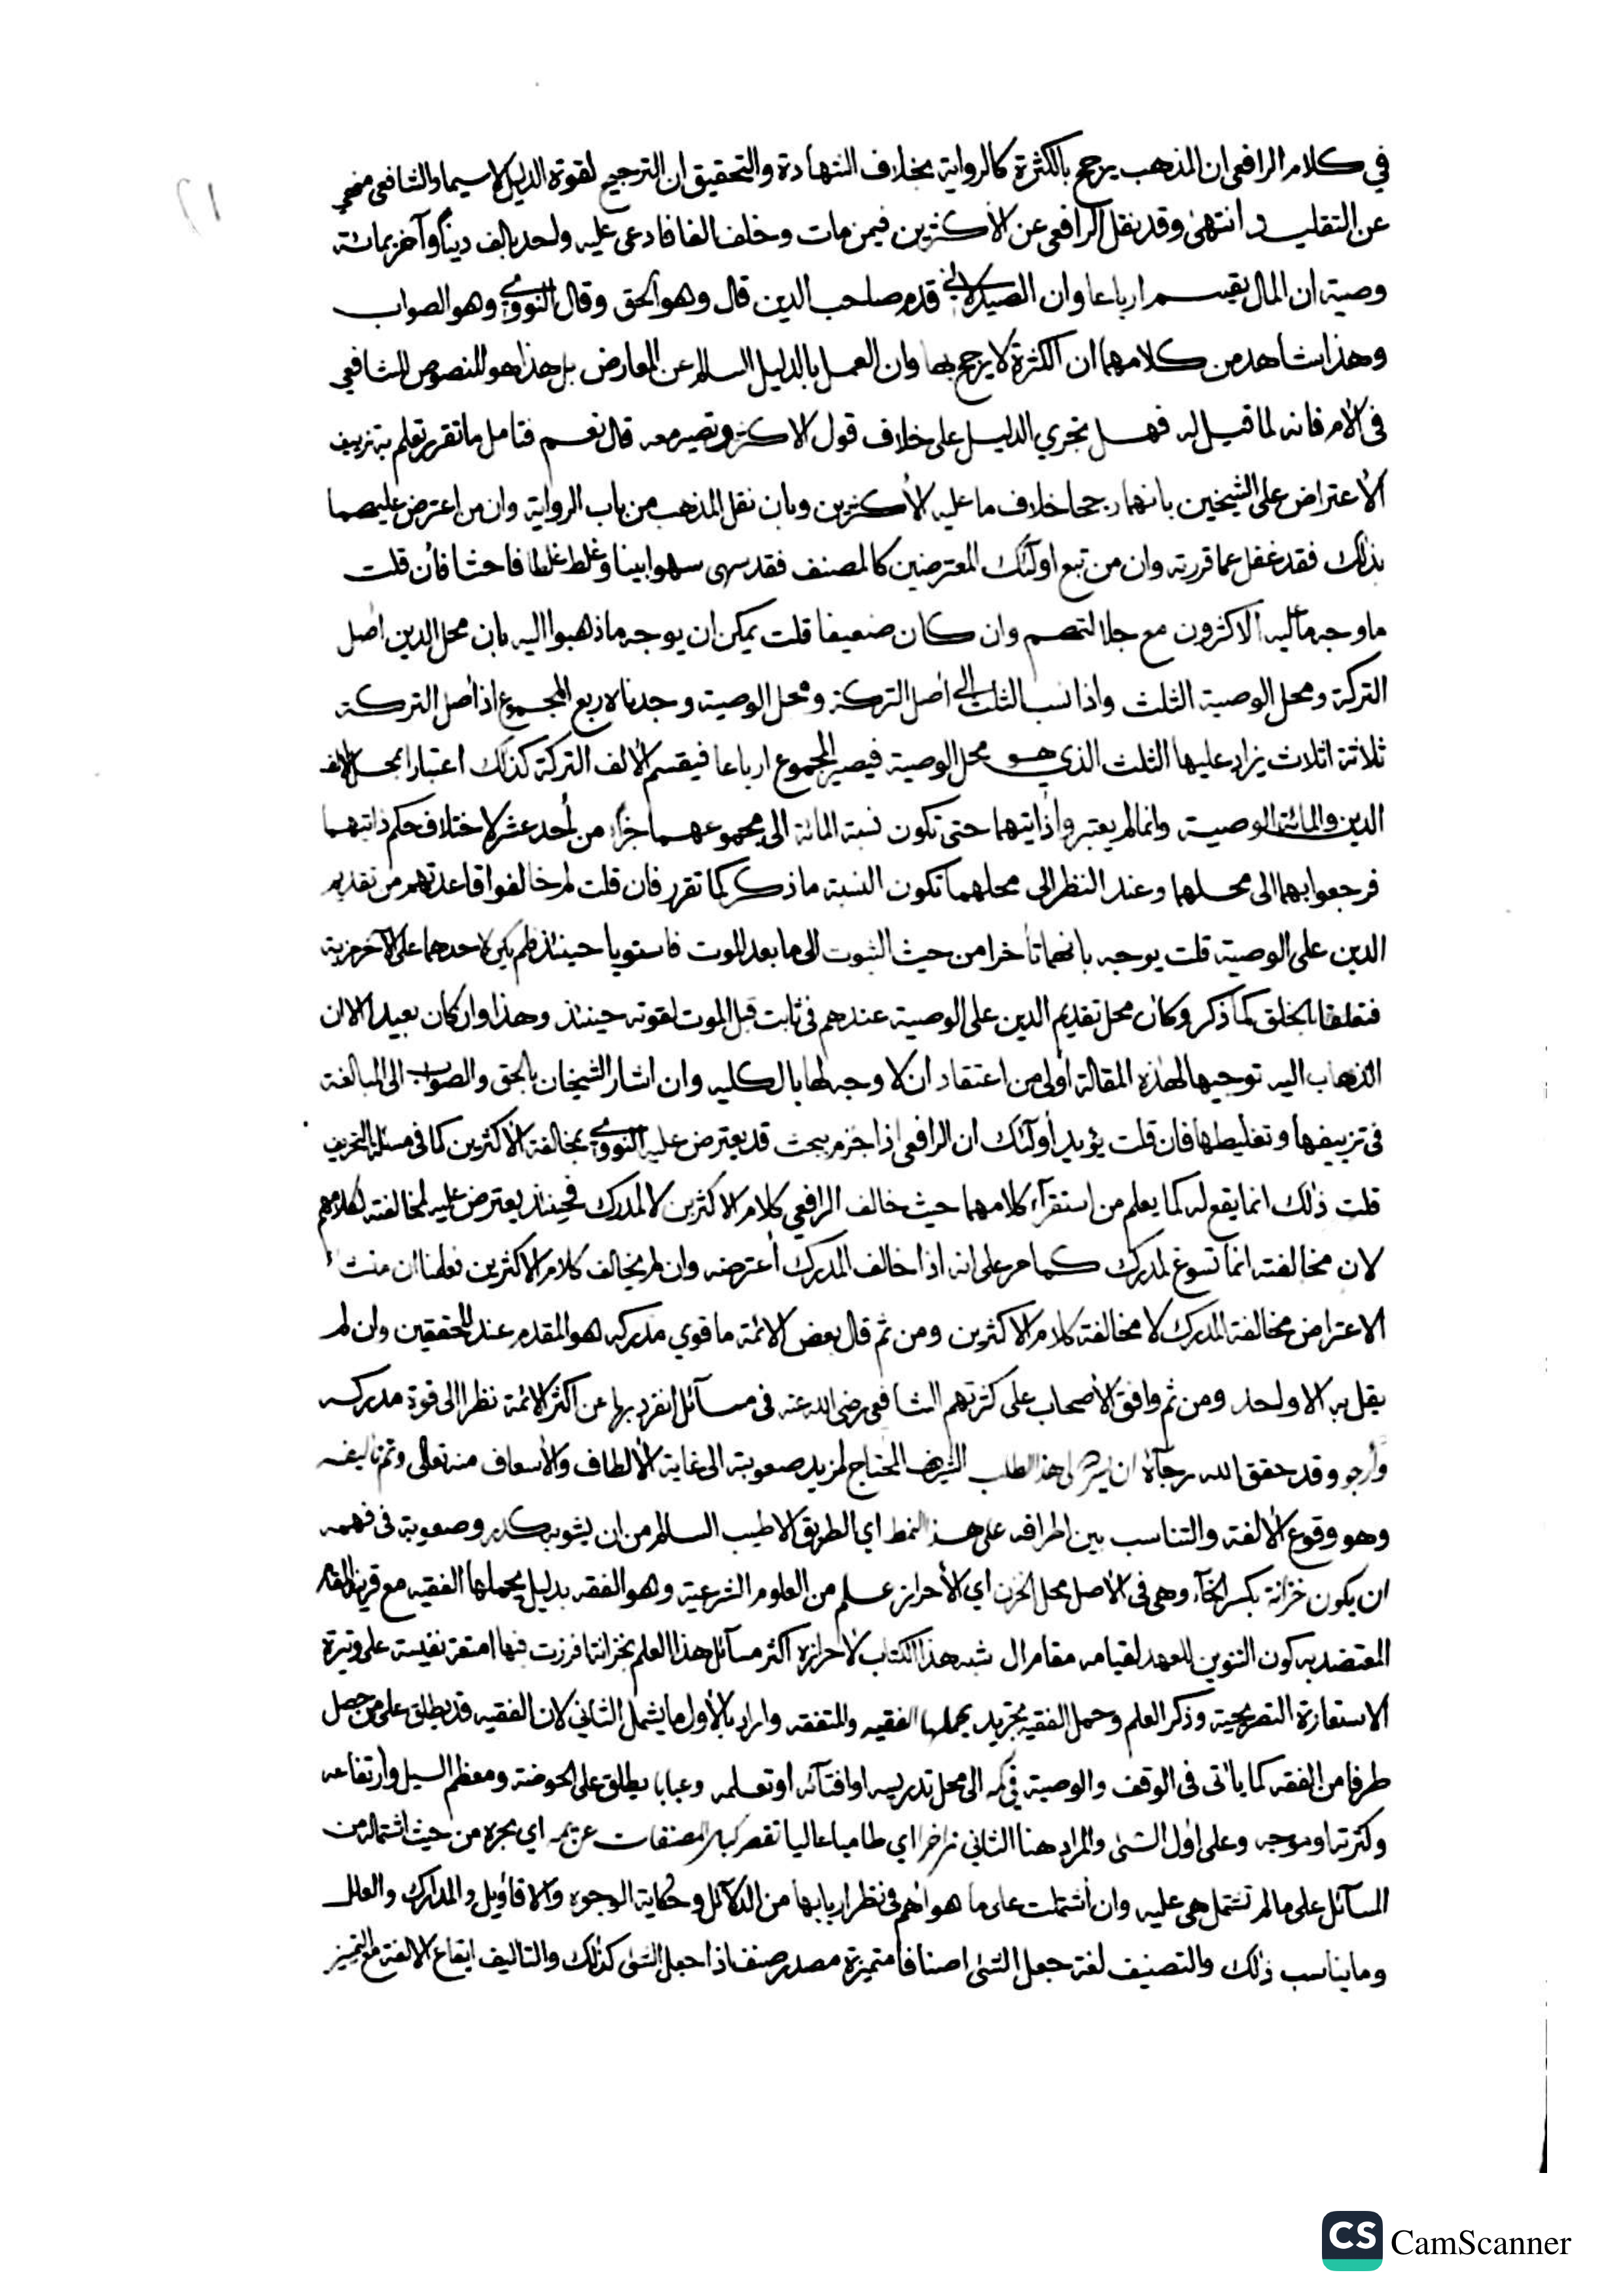 في كلام الرافعي ان المذهب يرجح بالكثرة كالرواية بخلاف الشهادة والتحقيق ان الترجيح لقوة الدليل لاسيما والشافعي منهي
عن التقليد انتهى وقد نقل الرافعي عن الأكثرين فيمن مات وخلف الفا فادعى عليه واحد بالف دينا وآخر بمائة
وصية ان المال يقسم ارباعا وان الصيدلاني قدم صاحب الدين قال وهو الحق وقال النووي وهو الصواب
وهذا شاهد من كلامهما ان الكثرة لا يرجح بها وان العمل بالدليل السالم عن المعارض بل هذا هو المنصوص للشافعي
في الأم فانه لما قيل له فهل تجري الدليل على خلاف قول الاكثر وتصير معه قال نعم فتامل ما تقرر تعلم به تزييف
الأعتراض على الشيخين بانهما رجحا خلاف ما عليه الأكثرين وبان نقل المذهب من باب الرواية وان من اعترض عليهما
بذلك فقد غفل عما قررته وان من تبع اولئك المعترضين كالمصنف فقد سهى سهوا بينا وغلط غلطا فاحشا فأن قلت
ما وجه ما عليه الاكثرون مع جلالتهم وان كان ضعيفا قلت يمكن ان يوجه ما ذهبوا اليه بان محل الدين اصل
التركة ومحل الوصية الثلث واذا نسب الثلث الى اصل التركة ومحل الوصية وجدناه ربع المجموع اذ اصل التركة
ثلاثة اثلاث يزاد عليها الثلث الذي هو محل الوصية فيصير المجموع ارباعا فيقسم الألف التركة كذلك اعتبارا بمحل الالف
الدين والمائة الوصية وانما لم يعتبروا ذاتيهما حتى تكون نسبة المائة الى مجموعهما جزأ من أحد عشر لاختلاف حكم ذاتيهما
فرجعوا بهما الى محلهما وعند النظر الى محلهما تكون النسبة ما ذكر كما تقرر فان قلت لم خالفوا قاعدتهم من تقديم
الدين على الوصية قلت يوجه بانهما تأخرا من حيث الثبوت الى ما بعد الموت فاستويا حينئذ فلم يكن لاحدهما على الآخر مزية
فتعلقا بالخلق كما ذكر وكان محل تقديم الدين على الوصية عندهم في ثابت قبل الموت لقوته حينئذ وهذا وان كان بعيدا الا ان
الذهاب اليه توجيها لهذه المقالة أولى من اعتقاد ان لا وجه لها بالكليه وان اشار الشيخان بالحق والصواب الى المبالغة
في تزييفها وتغليطها فان قلت يؤيد أولئك ان الرافعي اذا جزم ببحث قد يعترض عليه النووي بمخالفة الأكثرين كما في مسئلة
قلت ذلك انما يقع له كما يعلم من استقرآء كلامهما حيث خالف الرافعي كلام الاكثرين لا لمدرك فحينئذ يعترض عليه لمخالفته لكلامهم
لان مخالفته انما تسوغ لمدرك كما مر على انه اذا خالف المدرك أعترضه وان لم يخالف كلام الاكثرين فعلمنا ان منشأ
الاعتراض مخالفة المدرك لا مخالفة كلام الاكثرين ومن ثم قال بعض الائمة ما قوي مدركه هو المقدم عند المحققين وان لم
يقل به الا واحد ومن ثم وافق الأصحاب على كثرتهم الشافعي رضي الله عنه في مسآئل انفرد بها عن اكثر الائمة نظرا الى قوة مدركه
وأرجو وقد حقق الله رجآءه ان لهذا المطلب الشريف المحتاج لمزيد صعوبته الى غاية الألطاف والأسعاف منه تعالى وتم تأليفه
وهو وقوع الألفة والتناسب بين اطرافه على هذا النمط اي الطريق الاطيب السالم من ان يشوبه كدر وصعوبة في فهمه
ان يكون خزانة بكسر الخآء وهي في الأصل محل الخزن اي الأحراز علم من العلوم الشرعية وهو الفقه بدليل يحملها الفقيه مع قرينة المقام
المعتضد به كون التنوين للعهد لقيامه مقام ال شبه هذا الكتاب لأحرازه اكثر مسآئل هذا العلم بخزانة افرزت فيها امتعة نفيسة على وتيرة
الاستعارة التصريحية وذكر العلم وحمل الفقيه تجريد يحملها الفقيه والمتفقه واراد بالأول ما يشمل الثاني لان الفقيه قد يطلق على من حصل
طرفا من الفقه كما يأتي في الوقف والوصية في كمه الى محل تدريسه او افتآئه او تعلمه وعبابا يطلق على الخوضة ومعظم السيل وارتفاعه
وكثرته او موجه وعلى اول الشئ والمراد هنا الثاني زاخرا اي طاميا عاليا تقصر كبار المصنفات عن يمه اي بحره من حيث اشتماله من
المسآئل على ما لم تشتمل هي عليه وان أشتملت على ما هو اهم في نظر اربابها من الدلآئل وحكاية الوجوه والاقاويل والمدارك والعلل
وما يناسب ذلك والتصنيف لغة جعل الشئ اصنافا متميزة مصدر صنف اذا جعل الشئ كذلك والتاليف ايقاع الالفة مع التمييز
CamScanner